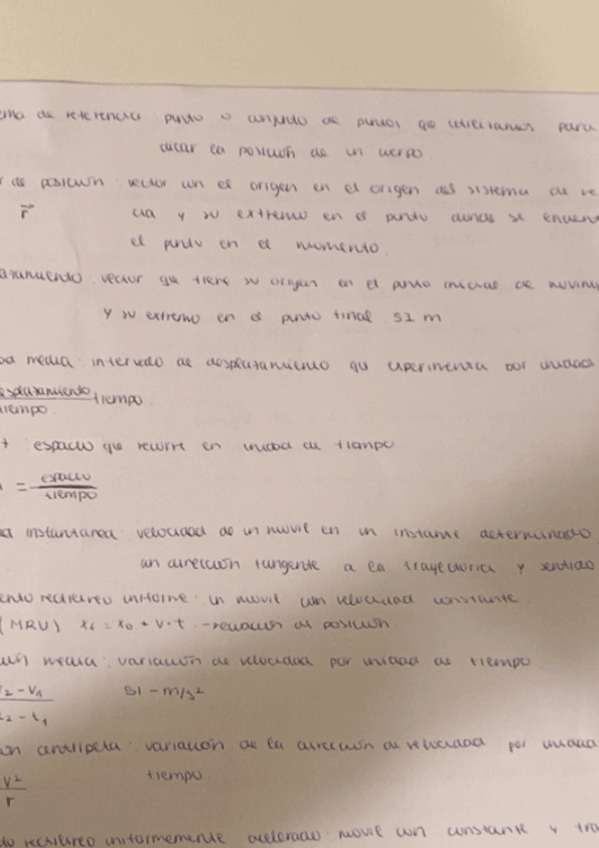 ema de referencia: punto o conjunto de puntos que utilizamos para
ubicar la posición de un cuerpo.
r de posición: vector con el origen en el origen del sistema de re
r⃗ cia y su extremo en el punto donde se encuent
el punto en el momento.
azamiento: vector que tiene su origen en el punto inicial de movimi
y su extremo en el punto final. SI m
ad media: intervalo de desplazamiento que experimenta por unidad
esplazamiento tiempo.
tiempo
t: espacio que recorre en unidad de tiempo
= espacio
tiempo
ad instantanea: velocidad de un movil en un instante determinado,
dirección tangente a la trayectoria y sentido
ento rectilíneo uniforme: un movil con velocidad constante.
(MRU) x₁ = x₀ + v·t. - ecuación de posición.
ción media: variación de velocidad por unidad de tiempo.
V₂ - V₁ SI - m/s²
t₂ - t₁
ón centripeta: variación de la dirección de velocidad por unidad
v² tiempo.
r
to rectilíneo uniformemente acelerado: movil con constante y tra